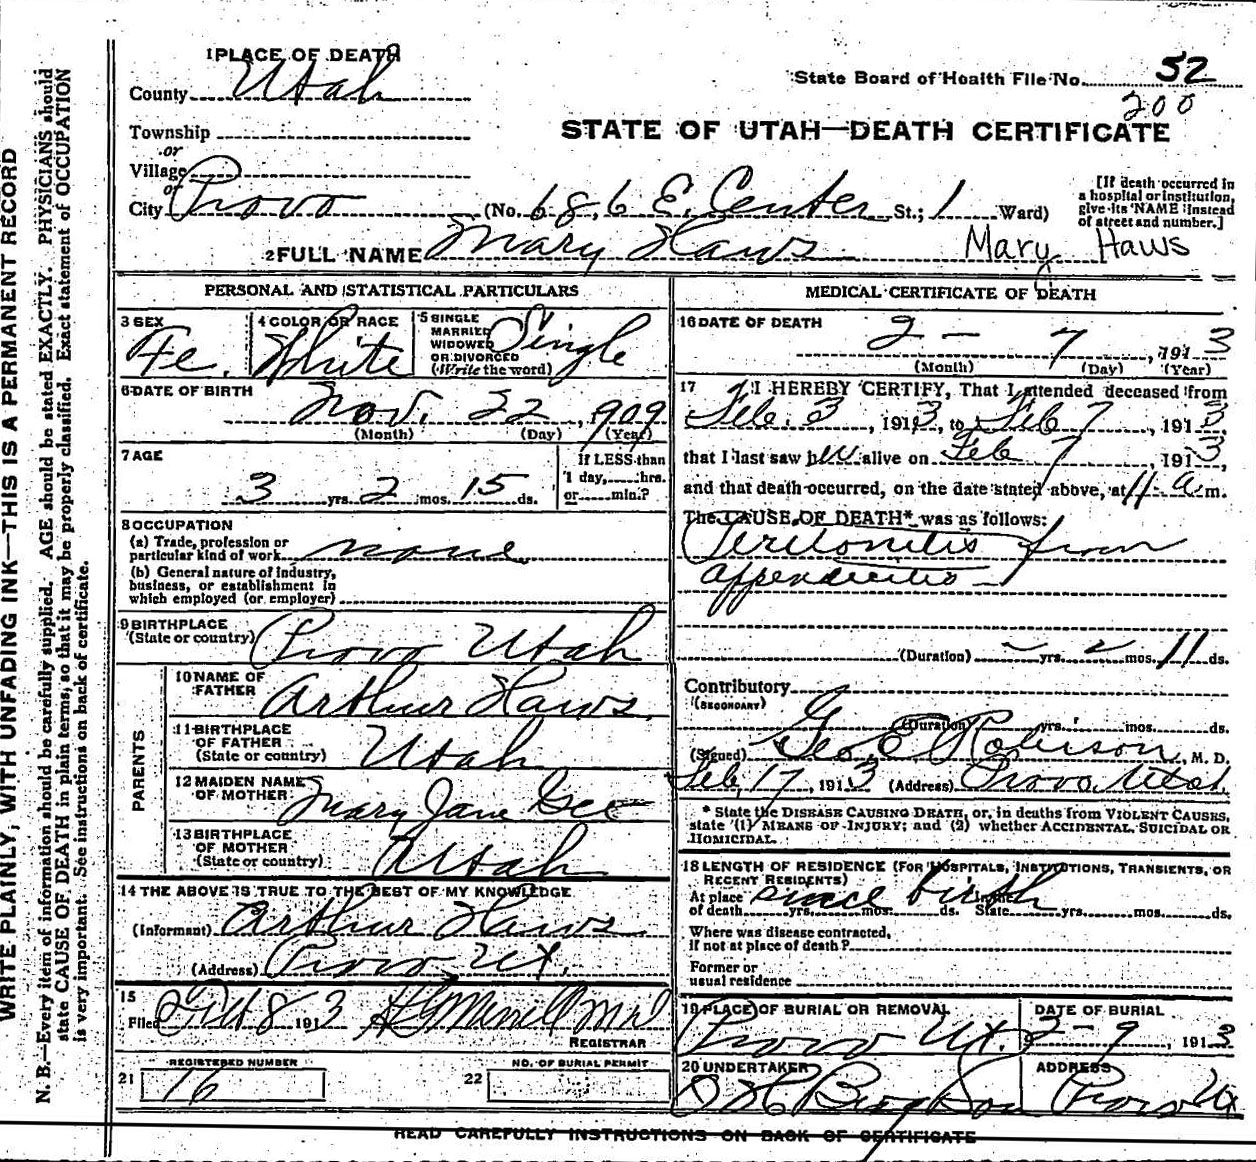 1 PLACE OF DEATH
County Utah
State Board of Health File No. 52
200
Township
or
Village
or
City Provo (No. 686 E. Center St.; 1 Ward)
STATE OF UTAH—DEATH CERTIFICATE
[If death occurred in
a hospital or institution,
give its NAME instead
of street and number.]
2 FULL NAME Mary Haws Mary Haws
PERSONAL AND STATISTICAL PARTICULARS
3 SEX Fe.
4 COLOR OR RACE White
5 SINGLE
MARRIED
WIDOWED
OR DIVORCED
(Write the word) Single
6 DATE OF BIRTH
Nov. 22, 1909
(Month) (Day) (Year)
7 AGE
3 yrs. 2 mos. 15 ds.
If LESS than
1 day, hrs.
or min.?
8 OCCUPATION
(a) Trade, profession or
particular kind of work none
(b) General nature of industry,
business, or establishment in
which employed (or employer)
9 BIRTHPLACE
(State or country) Provo Utah
PARENTS
10 NAME OF
FATHER Arthur Haws
11 BIRTHPLACE
OF FATHER
(State or country) Utah
12 MAIDEN NAME
OF MOTHER Mary Jane Gee
13 BIRTHPLACE
OF MOTHER
(State or country) Utah
14 THE ABOVE IS TRUE TO THE BEST OF MY KNOWLEDGE
(Informant) Arthur Haws
(Address) Provo Ut.
15
Filed Feb 8 1913 Merrill M D
REGISTRAR
REGISTERED NUMBER
21 16
NO. OF BURIAL PERMIT
22
MEDICAL CERTIFICATE OF DEATH
16 DATE OF DEATH
2 – 7, 1913
(Month) (Day) (Year)
17 I HEREBY CERTIFY, That I attended deceased from
Feb. 3, 1913, to Feb 7, 1913,
that I last saw her alive on Feb 7, 1913,
and that death occurred, on the date stated above, at 11 a m.
The CAUSE OF DEATH* was as follows:
Peritonitis from
appendicitis
(Duration) – yrs. – mos. 11 ds.
Contributory
(SECONDARY)
(Duration) yrs. mos. ds.
(Signed) Geo E Roberson, M. D.
Feb, 17, 1913 (Address) Provo, Utah.
* State the DISEASE CAUSING DEATH, or, in deaths from VIOLENT CAUSES,
state (1) MEANS OF INJURY; and (2) whether ACCIDENTAL, SUICIDAL OR
HOMICIDAL.
18 LENGTH OF RESIDENCE (FOR HOSPITALS, INSTITUTIONS, TRANSIENTS, OR
RECENT RESIDENTS)
At place
of death since birth yrs. mos. ds. State yrs. mos. ds.
Where was disease contracted,
if not at place of death?
Former or
usual residence
19 PLACE OF BURIAL OR REMOVAL
Provo Ut.
DATE OF BURIAL
2 – 9, 1913
20 UNDERTAKER
ADDRESS
Provo Ut
READ CAREFULLY INSTRUCTIONS ON BACK OF CERTIFICATE
WRITE PLAINLY, WITH UNFADING INK—THIS IS A PERMANENT RECORD
N. B.—Every item of information should be carefully supplied. AGE should be stated EXACTLY. PHYSICIANS should
state CAUSE OF DEATH in plain terms, so that it may be properly classified. Exact statement of OCCUPATION
is very important. See instructions on back of certificate.